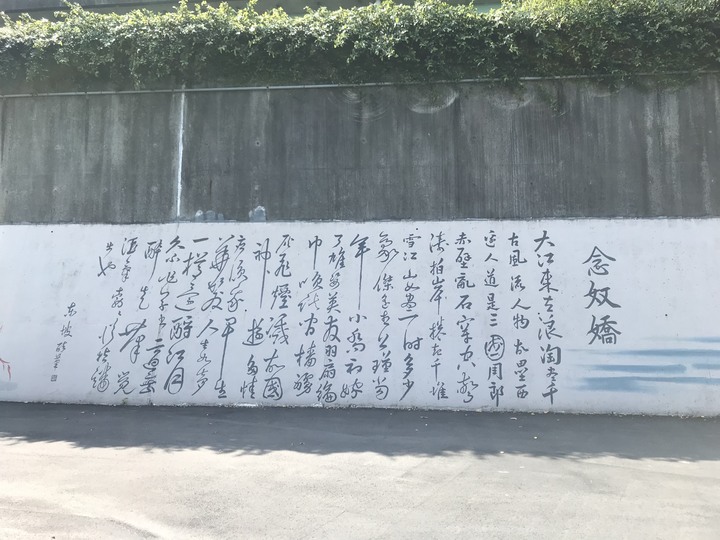 念奴嬌
大江東去浪淘盡千
古風流人物故壘西
邊人道是三國周郎
赤壁亂石穿空驚
濤拍岸捲起千堆
雪江山如畫一時多少
豪傑遙想公瑾當
年小喬初嫁
了雄姿英發羽扇綸
巾笑談間檣艣
灰飛煙滅故國
神游多情
應笑我早生
華髮人生如夢
一樽還酹江月
久不作草書適乘
醉走筆覺
酒氣勃勃從指端
出也
東坡醉筆